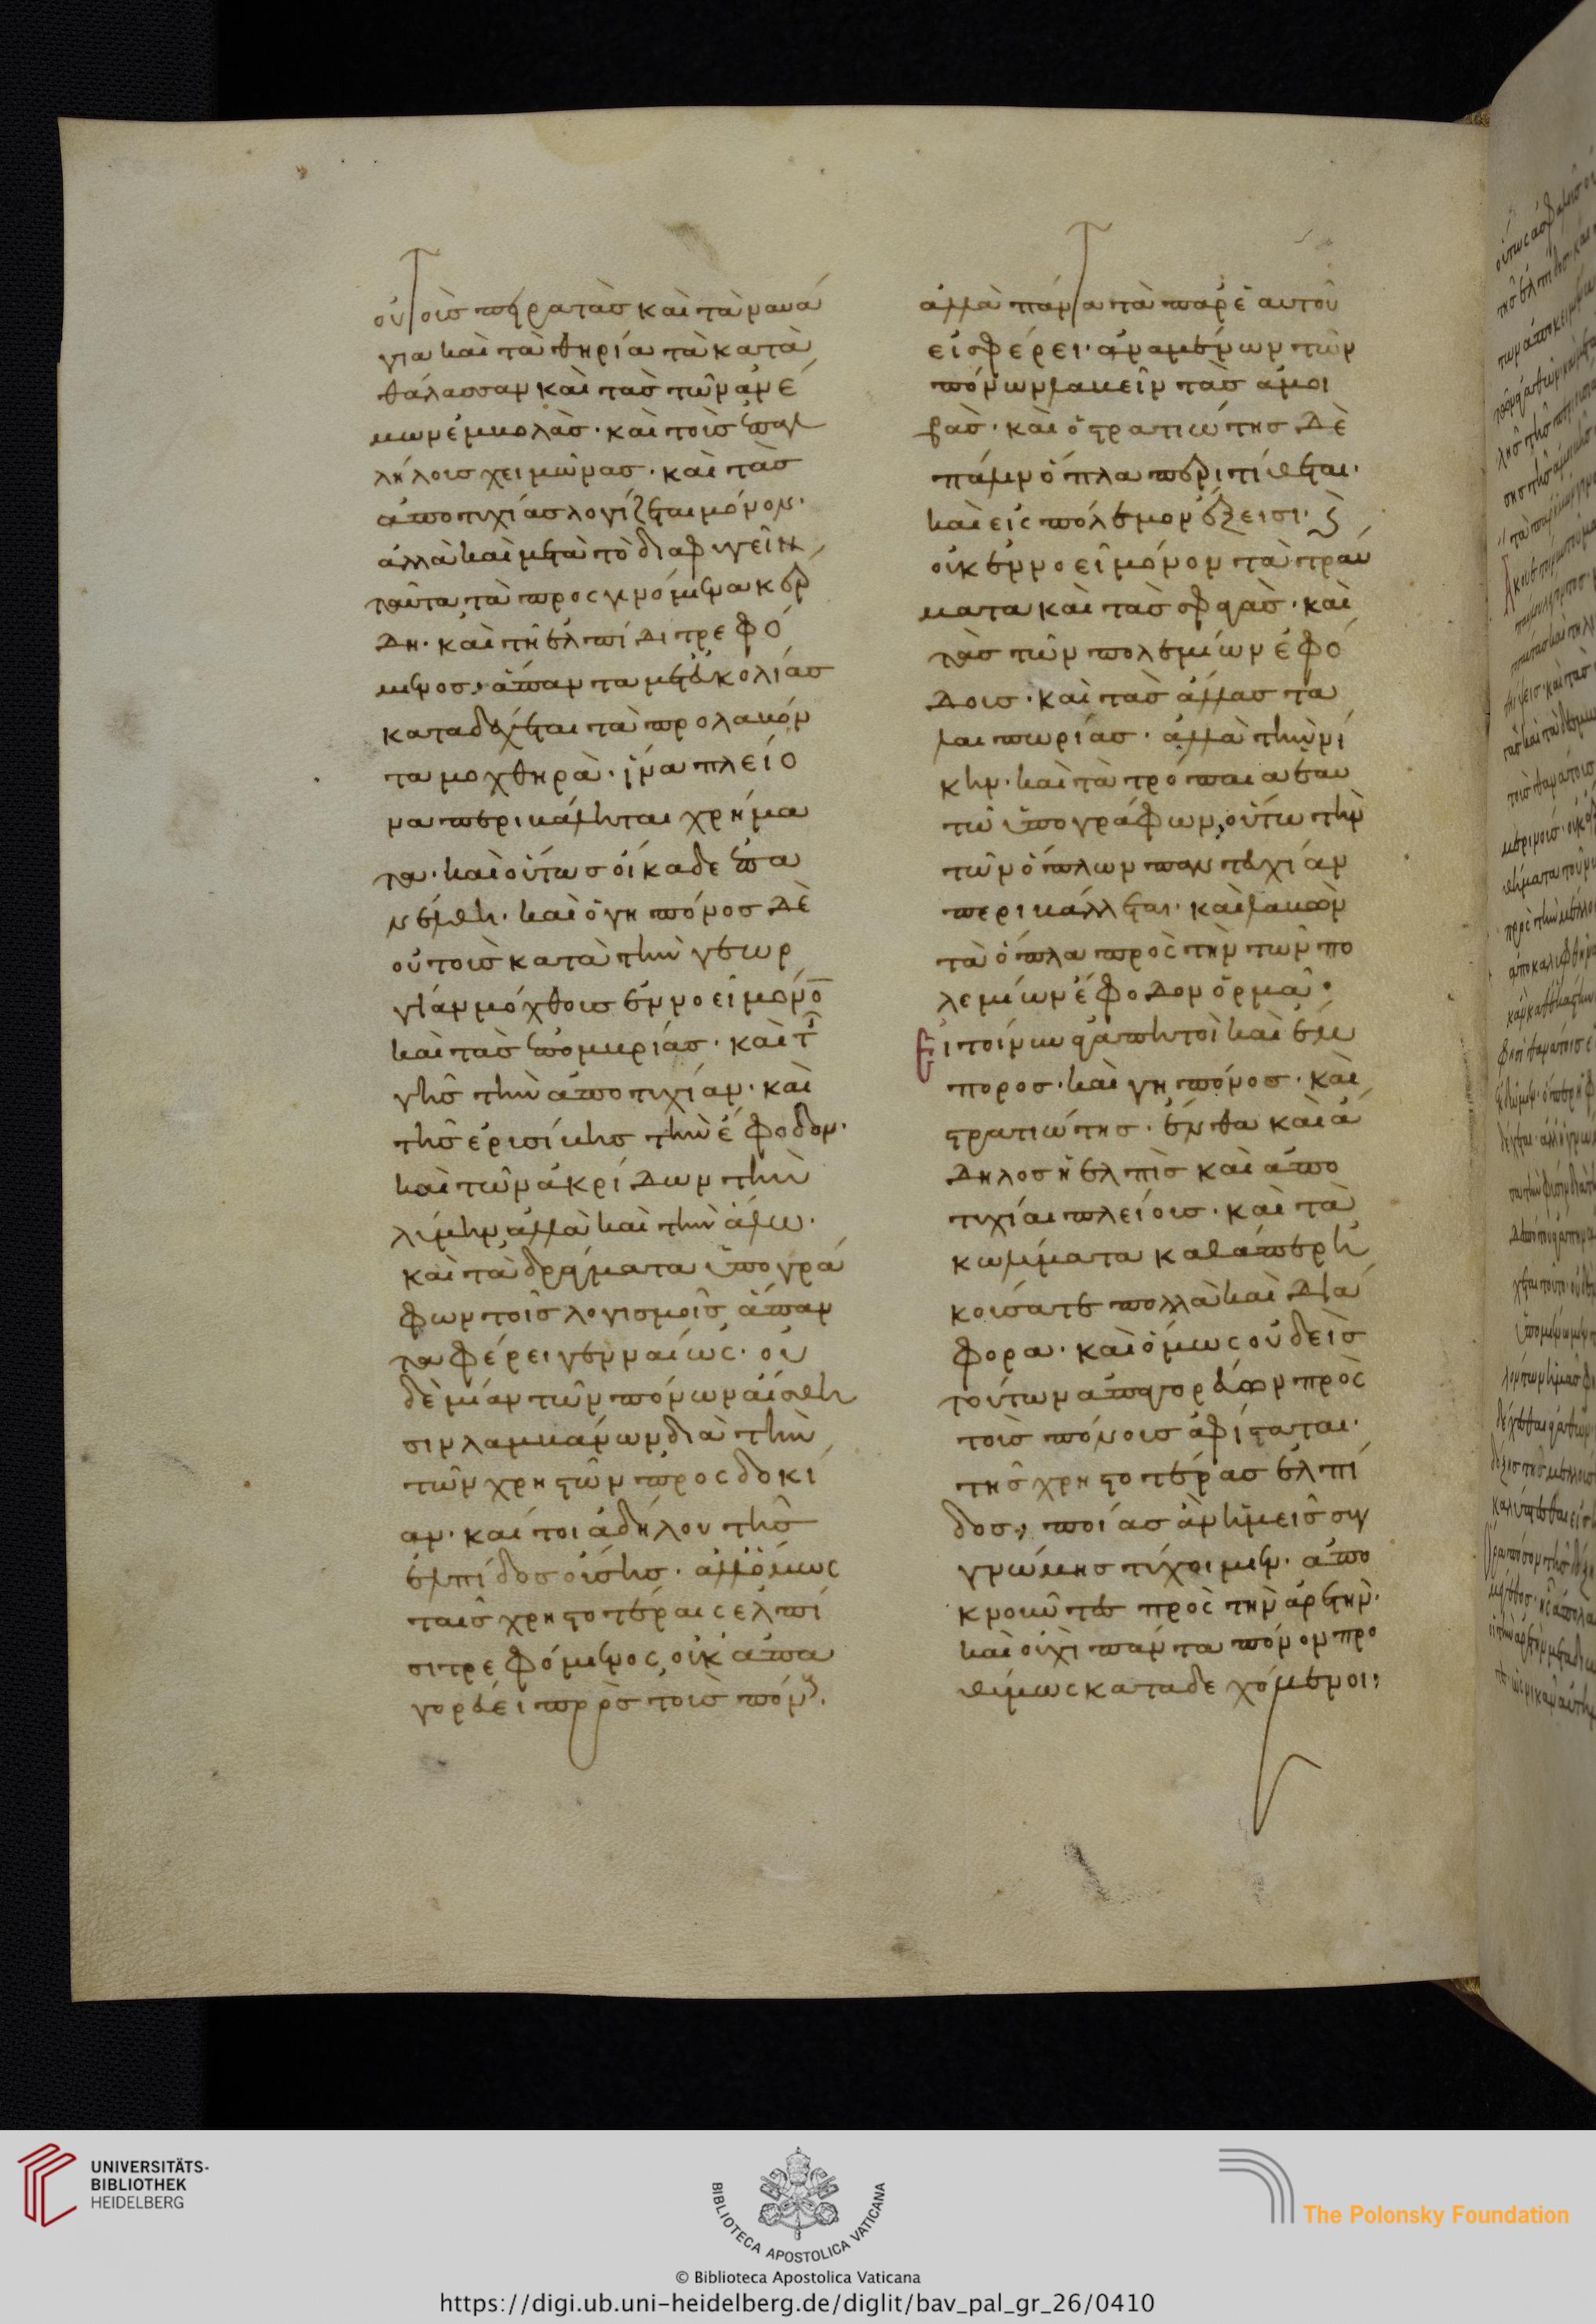 οὐ τοὺς πειρατὰς καὶ τὰ ναυά
για καὶ τὰ θηρία τὰ κατὰ
θάλασσαν καὶ τὰς τῶν ἀνέ
μων ἐμβολὰς· καὶ τοὺς ἐπαλ
λήλους χειμῶνας· καὶ τὰς
ἀποτυχίας λογίζεται μόνον·
ἀλλὰ καὶ μετὰ τὸ διαφυγεῖν
ταῦτα τὰ προσγινόμενα κέρ
δη· καὶ τῇ ἐλπίδι τρεφό
μενος, ἅπαντα μετ' εὐκολίας
καταδέχεται τὰ προλαβόν
τα μοχθηρὰ· ἵνα πλείο
να περιβάληται χρήμα
τα· καὶ οὕτως οἴκαδε ἐπα
νέλθῃ· καὶ ὁ γηπόνος δὲ
οὐ τοὺς κατὰ τὴν γεωρ
γίαν μόχθους ἐννοεῖ μόνο
καὶ τὰς ἐπομβρίας· καὶ τ
γῆς τὴν ἀποτυχίαν· καὶ
τῆς ἐρυσίβης τὴν ἔφοδον·
καὶ τῶν ἀκρίδων τὴν
λύμην ἀλλὰ καὶ τὴν ἅλω·
καὶ τὰ δράγματα ὑπογρά
φων τοῖς λογισμοῖς ἅπαν
τα φέρει γενναίως· οὐ
δὲ μίαν τῶν πόνων αἴσθη
σιν λαμβάνων διὰ τὴν
τῶν χρηστῶν προσδοκί
αν· καίτοι ἀδήλου τῆς
ἐλπίδος οὔσης· ἀλλ' ὅμως
ταῖς χρηστοτέραις ἐλπί
σι τρεφόμενος οὐκ ἀπα
γορεύει πρὸς τοὺς πόν
ἀλλὰ πάντα τὰ παρ' ἑαυτοῦ
εἰσφέρει· ἀναμένων τῶν
πόνων λαβεῖν τὰς ἀμοι
βάς· καὶ ὁ στρατιώτης δὲ
πάλιν ὅπλα περιτίθεται·
καὶ εἰς πόλεμον ἔξεισι· ϛ
οὐκ ἐννοεῖ μόνον τὰ τραύ
ματα καὶ τὰς σφαγὰς· καὶ
τὰς τῶν πολεμίων ἐφό
δους· καὶ τὰς ἄλλας τα
λαιπωρίας· ἀλλὰ τὴν νί
κην· καὶ τὰ τρόπαια ἑαυ
τῷ ὑπογράφων, οὕτω τὴν
τῶν ὅπλων παντευχίαν
περιβάλλεται· καὶ λαβὼν
τὰ ὅπλα πρὸς τὴν τῶν πο
λεμίων ἔφοδον ὁρμᾷ·
Εἰ τοίνυν ἀγαπητοὶ καὶ ἔμ
πορος· καὶ γηπόνος· καὶ
στρατιώτης· ἔνθα καὶ ἄ
δηλος ἡ ἐλπὶς καὶ ἀπο
τυχίαι πλείους· καὶ τὰ
κωλύματα καθάπερ ἠ
κούσατε πολλὰ καὶ διά
φορα· καὶ ὅμως οὐδεὶς
τούτων ἀπαγορεύων πρὸς
τοὺς πόνους ἀφίσταται·
τῆς χρηστοτέρας ἐλπί
δος, ποίας ἂν ἡμεῖς συγ
γνώμης τύχοιμεν· ἀπο
κνοῦντες πρὸς τὴν ἀρετήν·
καὶ οὐχὶ πάντα πόνον προ
θύμως καταδεχόμενοι;
UNIVERSITÄTS-
BIBLIOTHEK
HEIDELBERG
BIBLIOTECA APOSTOLICA VATICANA
The Polonsky Foundation
© Biblioteca Apostolica Vaticana
https://digi.ub.uni-heidelberg.de/diglit/bav_pal_gr_26/0410